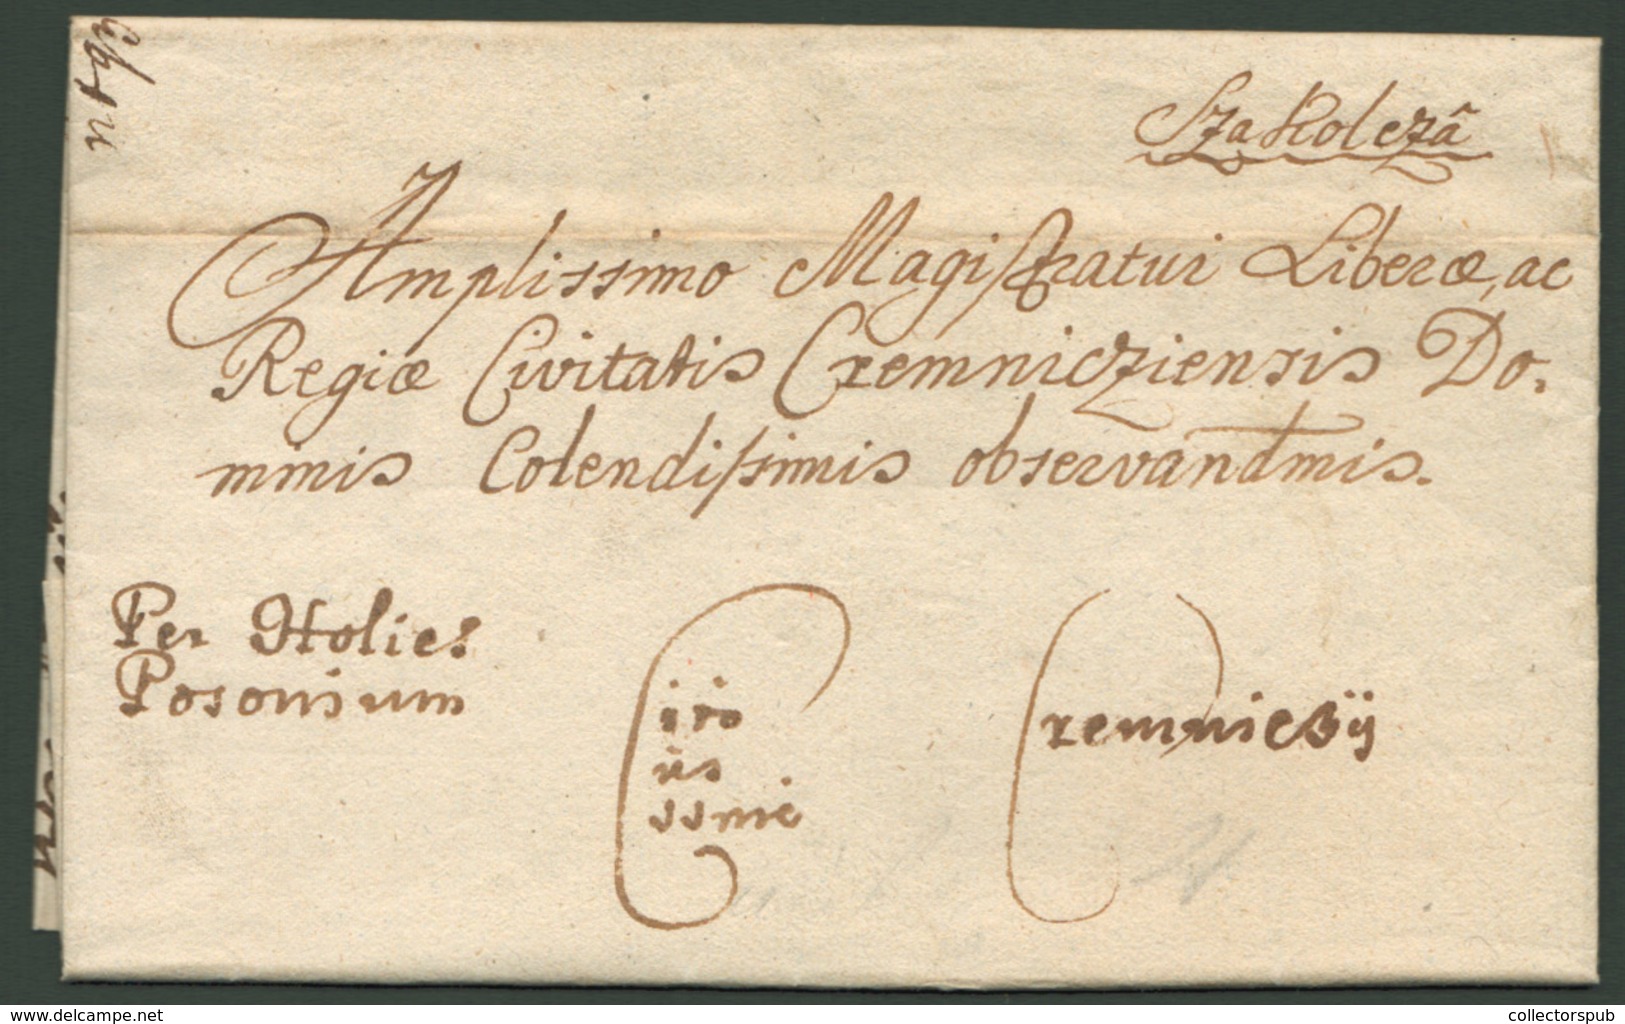 Szakolczâ
Amplissimo Magistratui Liberæ, ac
Regiæ Civitatis Cremnicziensis Do-
minis Colendissimis observandmis.
Per Holics
Posonium
Cito
Cito
Citissime
Cremniczÿ
www.delcampe.net
collectorspub